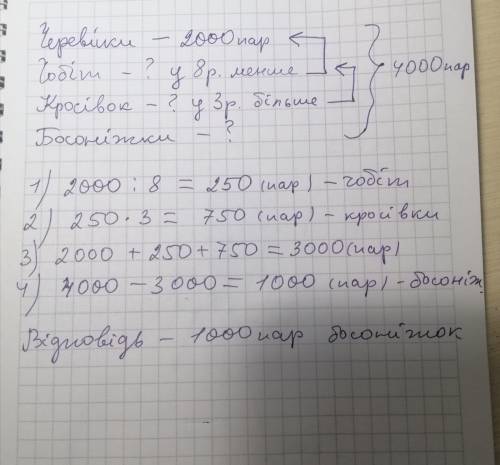 Черевики – 2000 пар
Чобіт – ? у 8 р. менше
Кросівок – ? у 3 р. більше
Босоніжки – ?
4000 пар
1) 2000 : 8 = 250 (пар) – чобіт
2) 250 · 3 = 750 (пар) – кросівки
3) 2000 + 250 + 750 = 3000 (пар)
4) 4000 – 3000 = 1000 (пар) – босоніж.
Відповідь – 1000 пар босоніжок